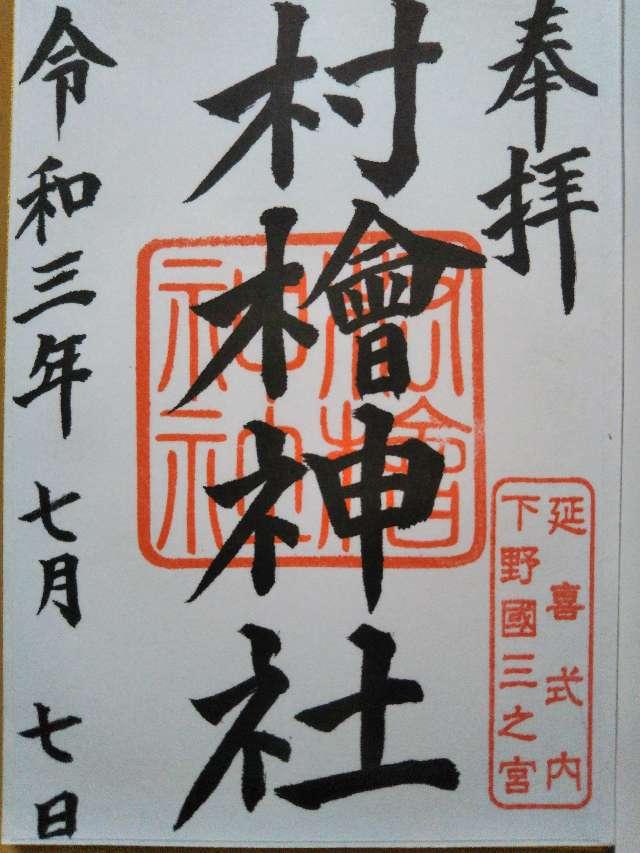 奉拝
延喜式内
下野國三之宮
村檜神社
村檜神社
令和三年 七月 七日